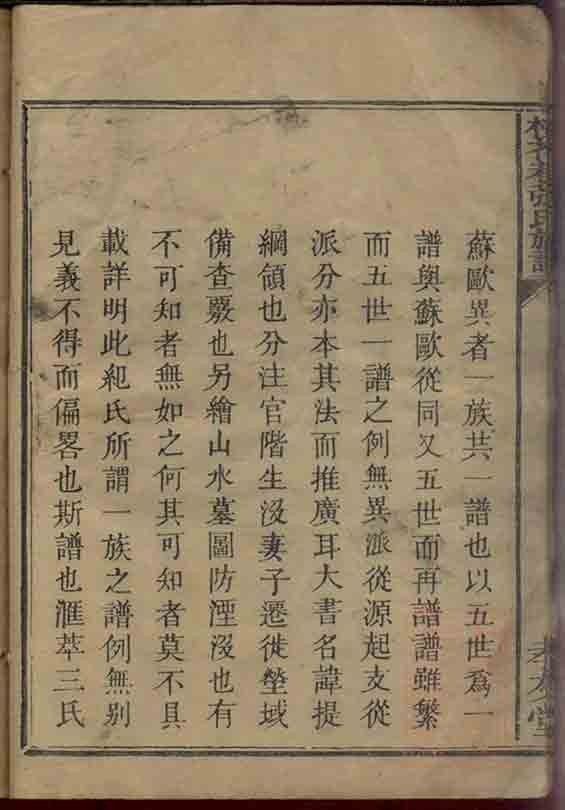 氏族譜
堂
蘇歐異者一族共一譜也以五世爲一
譜與蘇歐從同又五世而再譜譜雖繁
而五世一譜之例無異派從源起支從
派分亦本其法而推廣耳大書名諱提
綱領也分注官階生没妻子遷徙塋域
備查覈也另繪山水墓圖防湮没也有
不可知者無如之何其可知者莫不具
載詳明此紀氏所謂一族之譜例無别
見義不得而偏畧也斯譜也滙萃三氏